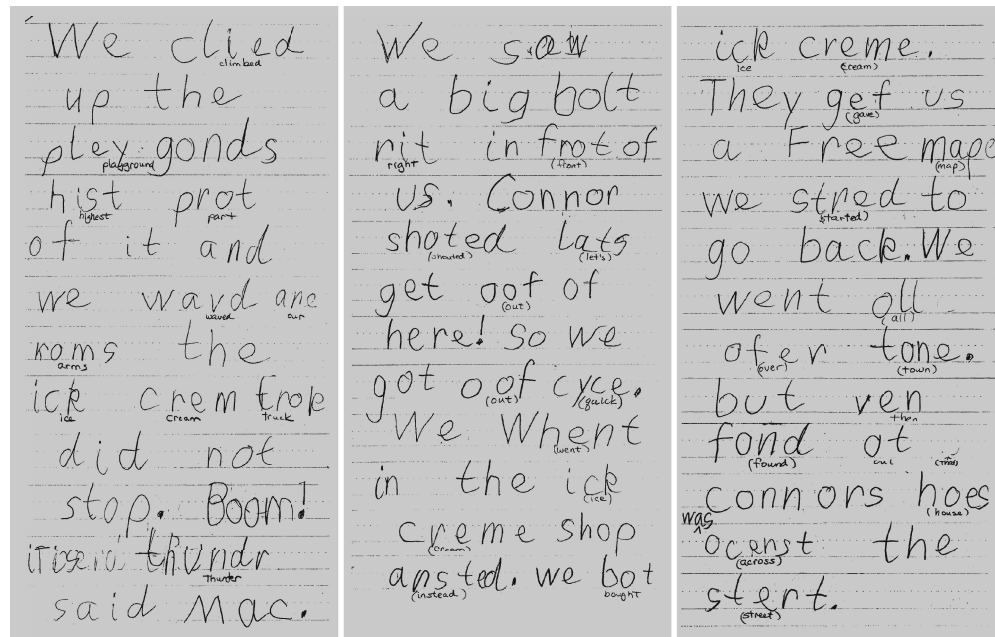 We clied
climbed
up the
pley gonds
playground
hist prot
highest part
of it and
we wavd are
waved our
roms the
arms
ick crem trok
ice cream truck
did not
stop. Boom!
thundr
Thunder
said Mac.
We saw
a big bolt
rit in frot of
right (front)
us. Connor
shoted lats
(shouted) (let's)
get oof of
(out)
here! So we
got oof cyce.
(out) (quick)
We Whent
(went)
in the ick
(ice)
creme shop
(cream)
ansted. we bot
(instead) bought
ick creme.
Ice (cream)
They gef us
(gave)
a Free mape
(map)
we stred to
(started)
go back. We
went all
(all)
ofer tone.
(over) (town)
but ven
then
fond ot
(found) out (that)
connors hoes
(house)
was
ocenst the
(across)
stert.
(street)